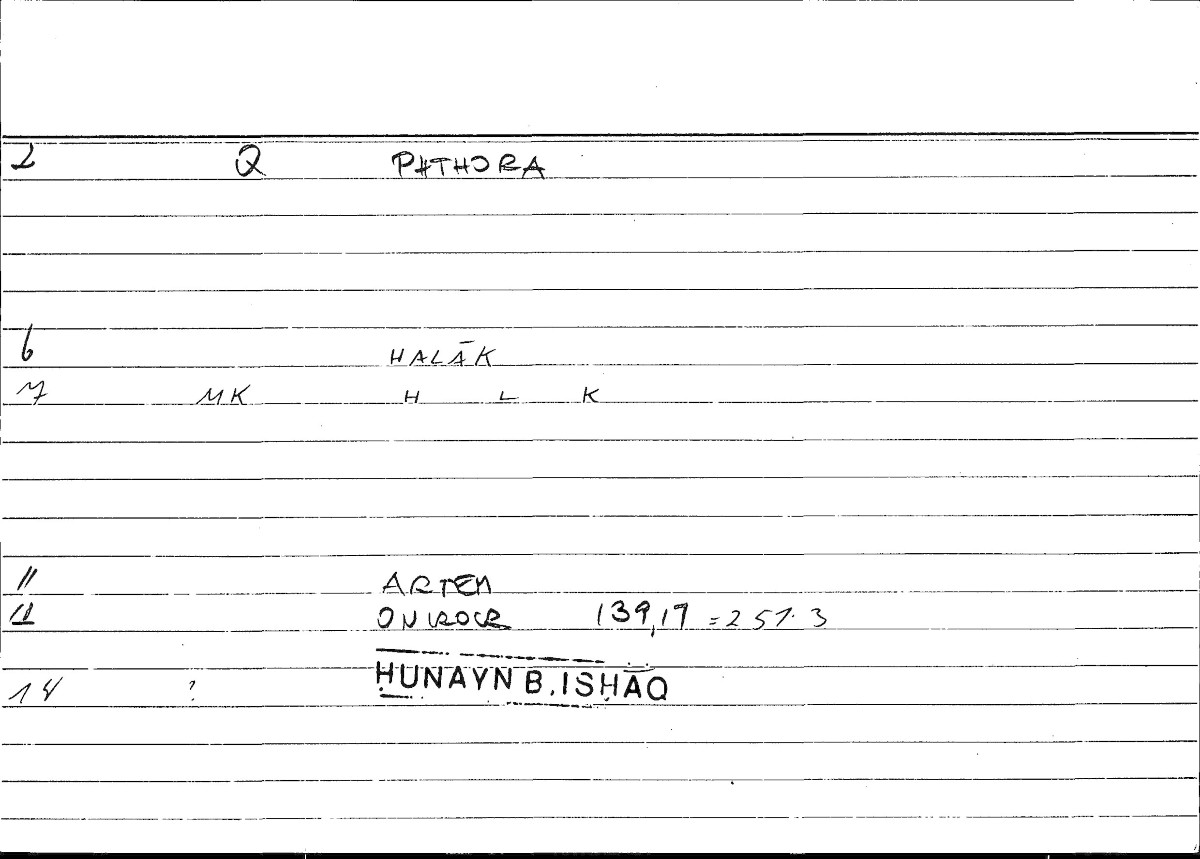 2 Q PHTHORA
6 HALĀK
7 MK H L K
11 ARTEM
12 ONIROCR 139,17 = 257.3
14 ? ḤUNAYN B. ISḤĀQ